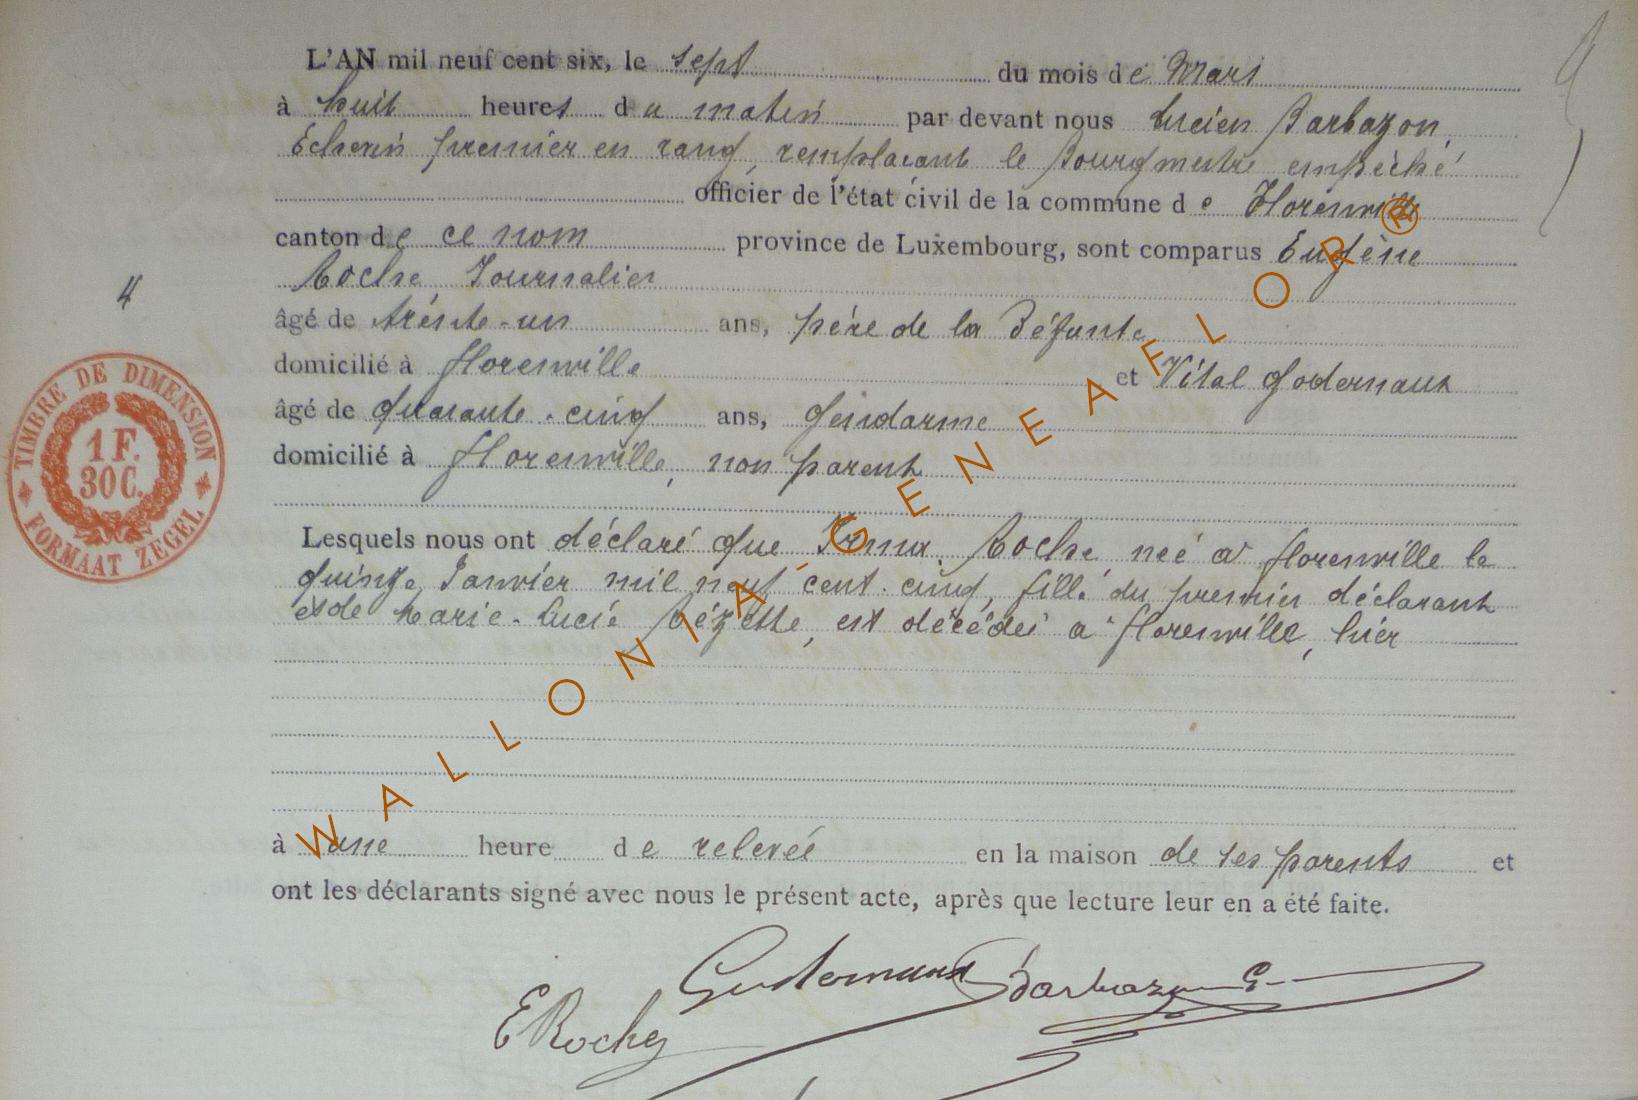 L'AN mil neuf cent six, le sept du mois de Mars
à huit heures du matin par devant nous Lucien Barbazon,
Echevin premier en rang, remplaçant le Bourgmestre empêché
officier de l'état civil de la commune de Florenville
canton de ce nom province de Luxembourg, sont comparus Eugène
Roche, Journalier
âgé de trente-un ans, père de la Défunte
domicilié à Florenville et Vital Godernaux
âgé de quarante-cinq ans, Gendarme
domicilié à Florenville, non parent
4
TIMBRE DE DIMENSION
1 F.
30 C.
FORMAAT ZEGEL
Lesquels nous ont déclaré que Irma Roche, née à Florenville le
quinze Janvier mil neuf cent cinq, fille du premier déclarant
et de Marie-Lucie Rézette, est décédée à Florenville, hier
à une heure de relevée en la maison de ses parents et
ont les déclarants signé avec nous le présent acte, après que lecture leur en a été faite.
Godernaux Barbazon
E Roche
WALLONIA-GENEAFLOR®